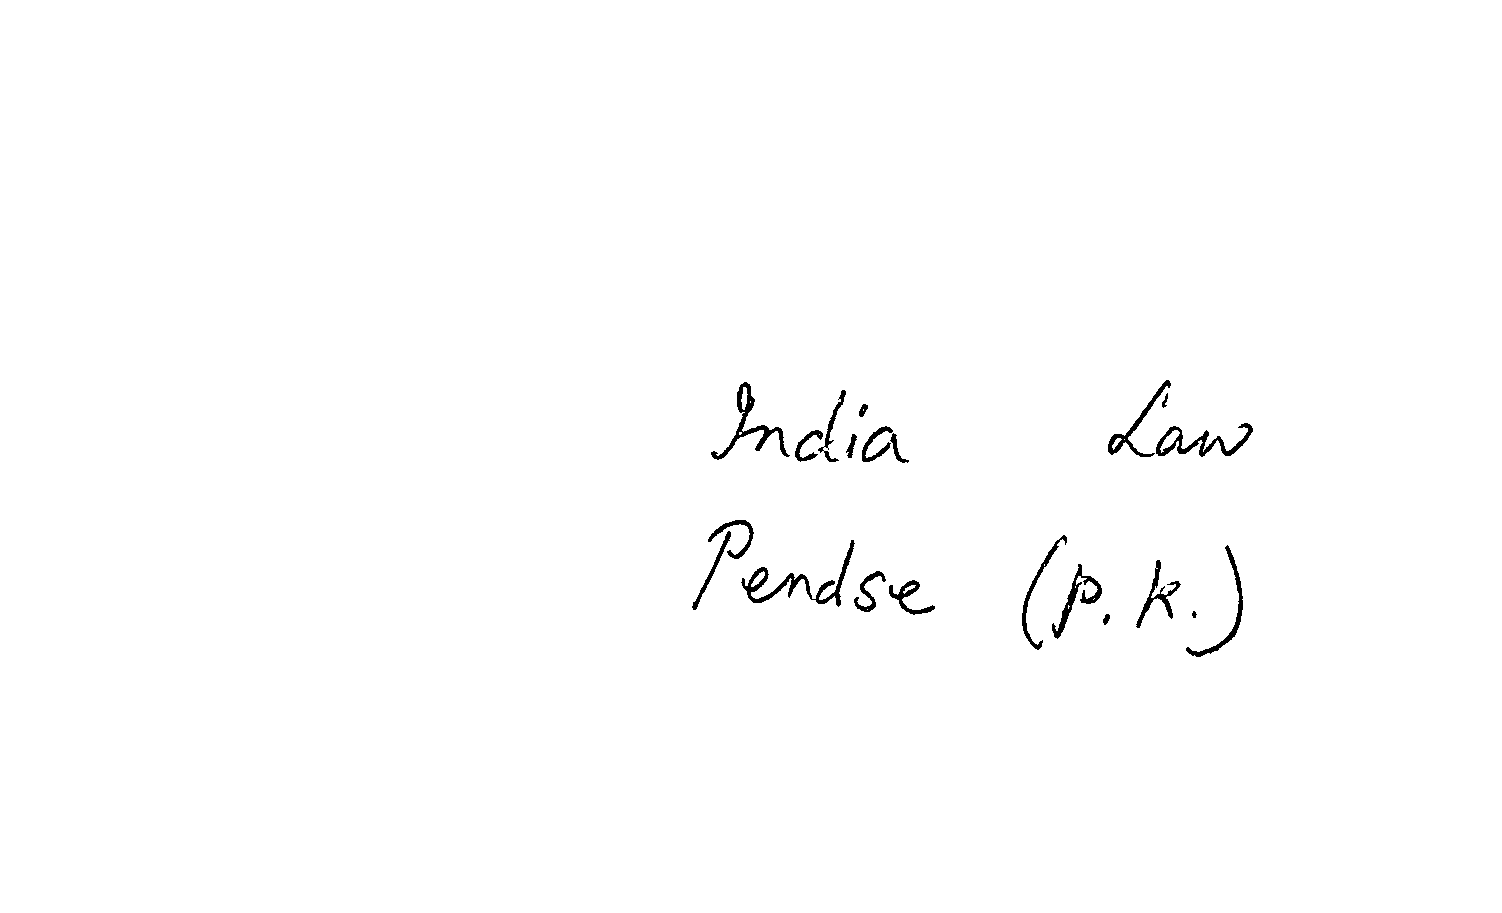 India Law
Pendse (P. K.)